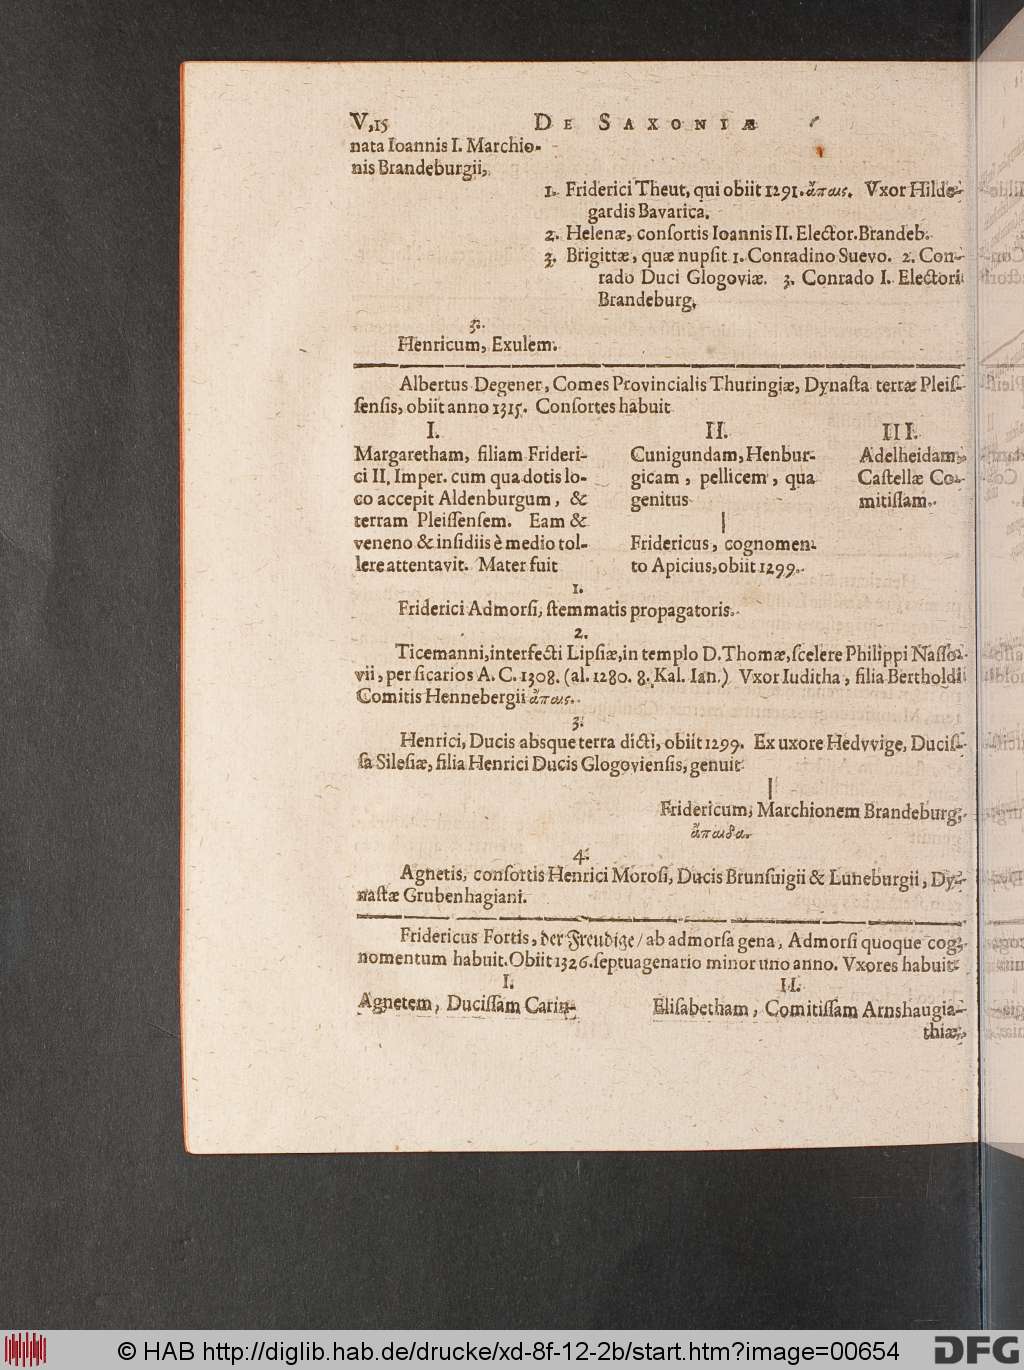 V,15 DE SAXONIÆ
nata Ioannis I. Marchio-
nis Brandeburgii,
1. Friderici Theut, qui obiit 1291. ἄπαις. Vxor Hilde-
gardis Bavarica.
2. Helenæ, conſortis Ioannis II. Elector. Brandeb.
3. Brigittæ, quæ nupſit 1. Conradino Suevo. 2. Con-
rado Duci Glogoviæ. 3. Conrado I. Electori
Brandeburg.
5.
Henricum, Exulem.
Albertus Degener, Comes Provincialis Thuringiæ, Dynaſta terræ Pleiſ-
ſenſis, obiit anno 1315. Conſortes habuit
I.
Margaretham, filiam Frideri-
ci II, Imper. cum qua dotis lo-
co accepit Aldenburgum, &
terram Pleiſſenſem. Eam &
veneno & inſidiis è medio tol-
lere attentavit. Mater fuit
II.
Cunigundam, Henbur-
gicam, pellicem, qua
genitus
Fridericus, cognomen-
to Apicius, obiit 1299.
III.
Adelheidam,
Caſtellæ Co-
mitiſſam.
1.
Friderici Admorſi, ſtemmatis propagatoris.
2.
Ticemanni, interfecti Lipſiæ, in templo D. Thomæ, ſcelere Philippi Naſſo-
vii, per ſicarios A. C. 1308. (al. 1280. 8. Kal. Ian.) Vxor Iuditha, filia Bertholdi
Comitis Hennebergii ἄπαις.
3.
Henrici, Ducis absque terra dicti, obiit 1299. Ex uxore Hedvvige, Duciſ-
ſa Sileſiæ, filia Henrici Ducis Glogovienſis, genuit
Fridericum, Marchionem Brandeburg,
ἄπαιδα.
4.
Agnetis, conſortis Henrici Moroſi, Ducis Brunſuigii & Luneburgii, Dy-
naſtæ Grubenhagiani.
Fridericus Fortis, der Freudige / ab admorſa gena, Admorſi quoque cog-
nomentum habuit. Obiit 1326. ſeptuagenario minor uno anno. Vxores habuit
I.
Agnetem, Duciſſam Carin-
II.
Eliſabetham, Comitiſſam Arnshaugia-
thiæ,
© HAB http://diglib.hab.de/drucke/xd-8f-12-2b/start.htm?image=00654
DFG